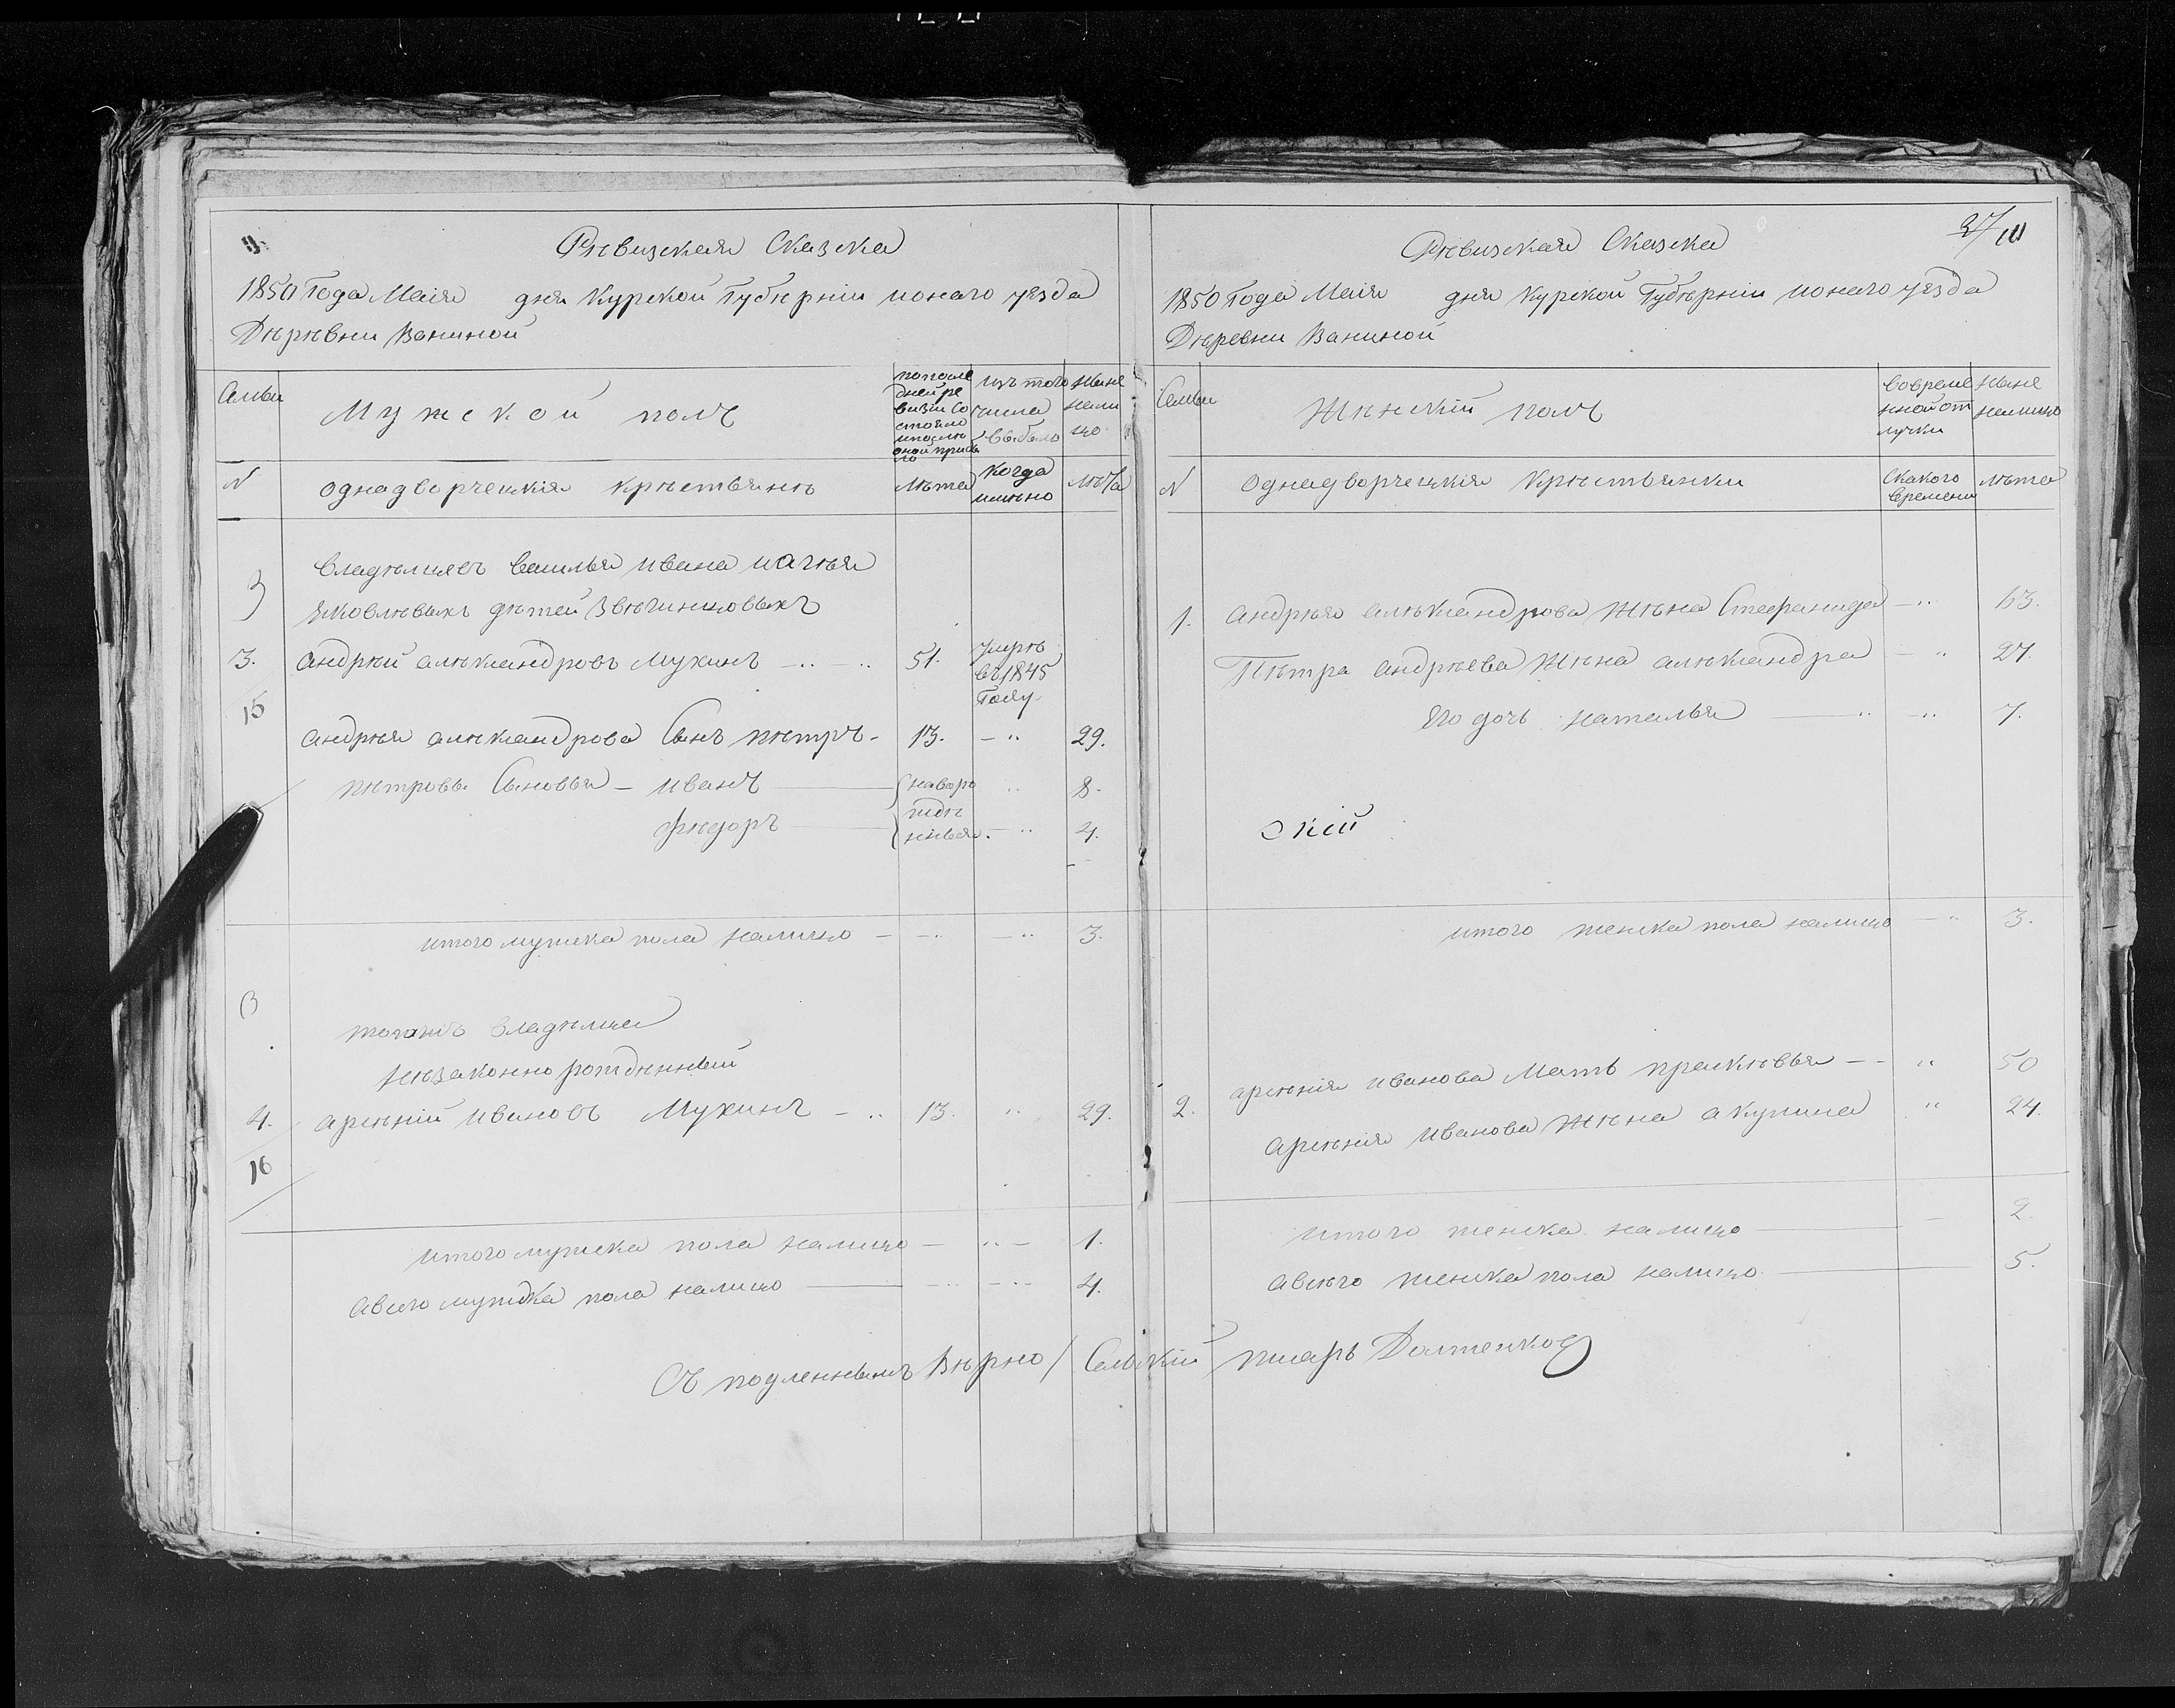 Рѣвизская Сказка
1850 Года Маия дня Курской Губѣрніи ионаго уезда
Дѣрѣвни Ваниной
Семьи
Мужской полъ
попосле
дней ре
визіи со
стояло
ипослѣ
оной прибы
ло
изъ того
числа
выбыло
ныне
нали
цо
N
однадворческия крѣстьянѣ
лѣта
когда
имѣно
лѣта
владѣльцевъ василья ивана
яковлѣвыхъ дѣтей Звѣгинцовыхъ
3. андрѣй алѣксандровъ Мухинъ 51. умрѣ
въ 1845
Году
15
андрѣя алѣксандрова Сынъ пѣтръ 13. 29.
пѣтровы Сыновья иванъ новоро 8.
фѣдоръ ждѣ
нныя 4.
итого мужска пола налицо 3.
тогожъ владѣльца
нѣзаконно рождѣнный
4. арсѣній ивановъ Мухинъ 13. 29.
16
итого мужска пола налицо 1.
авсего мужска пола налицо 4.
Съ подленнымъ Вѣрно / Сельскій писарь Долженков
Рѣвизская Сказка
27/111
1850 Года Маия дня Курской Губѣрніи ионаго уезда
Дѣревни Ваниной
Семьи
Жѣнскій полъ
воврѣме
нной от
лучки
ныне
налицо
N
однадворческия крѣстьянки
Скакого
времени
лѣта
1. андрѣя алѣксандрова жѣна Стефанида 63.
Пѣтра андрѣева жѣна алѣксандра 27.
Его дочь наталья 7.
скій
итого женска пола налицо 3.
2. арсѣнія иванова Мать прасковья 50
арсѣнія иванова жѣна акулина 24.
итого женска налицо 2.
авсѣго женска пола налицо 5.